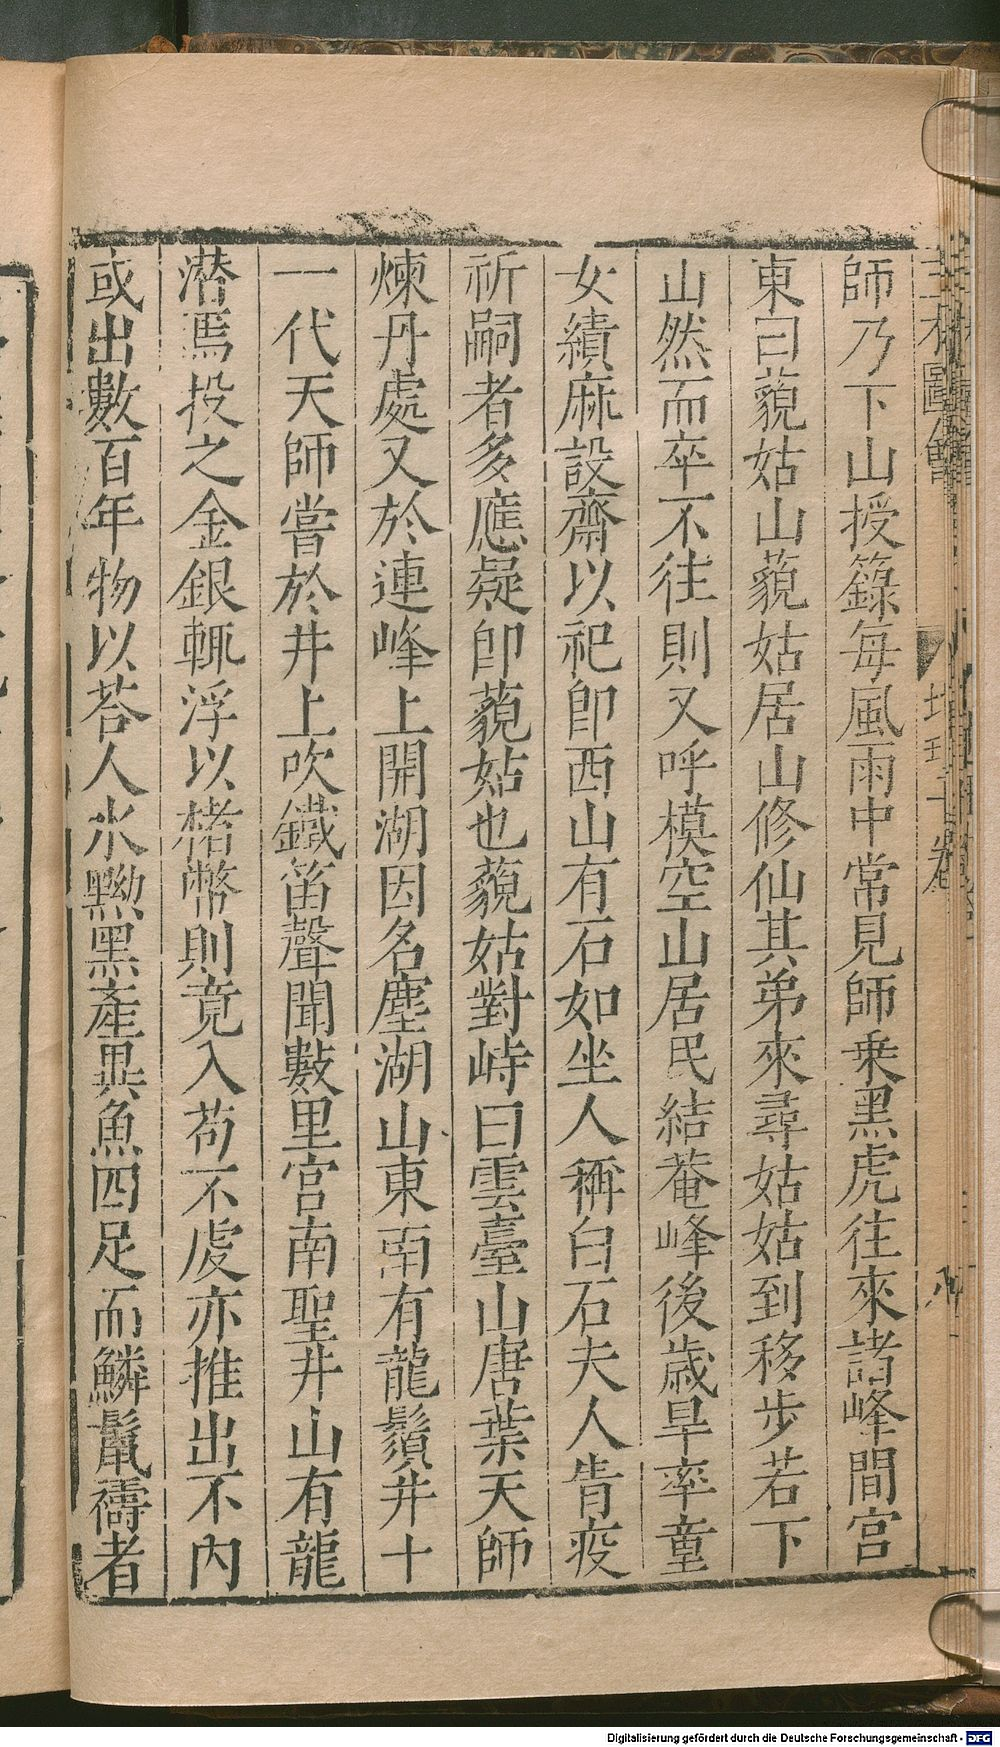 師乃下山授籙每風雨中常見師乗黑虎往來諸峰間宫
東曰藐姑山藐姑居山修仙其弟來尋姑姑到移步若下
山然而卒不往則又呼模空山居民結菴峰後歲旱率童
女績麻設齋以祀卽西山有石如坐人稱白石夫人眚疫
祈嗣者多應疑卽藐姑也藐姑對峙曰雲臺山唐葉天師
煉丹處又於連峰上開湖因名塵湖山東南有龍鬚井十
一代天師嘗於井上吹鐵笛聲聞數里宫南聖井山有龍
潜焉投之金銀輒浮以楮幣則竟入苟不虔亦推出不内
或出數百年物以荅人水黝黑產異魚四足而鱗鬣禱者
三才圖會
地理十卷
八
Digitalisierung gefördert durch die Deutsche Forschungsgemeinschaft - DFG